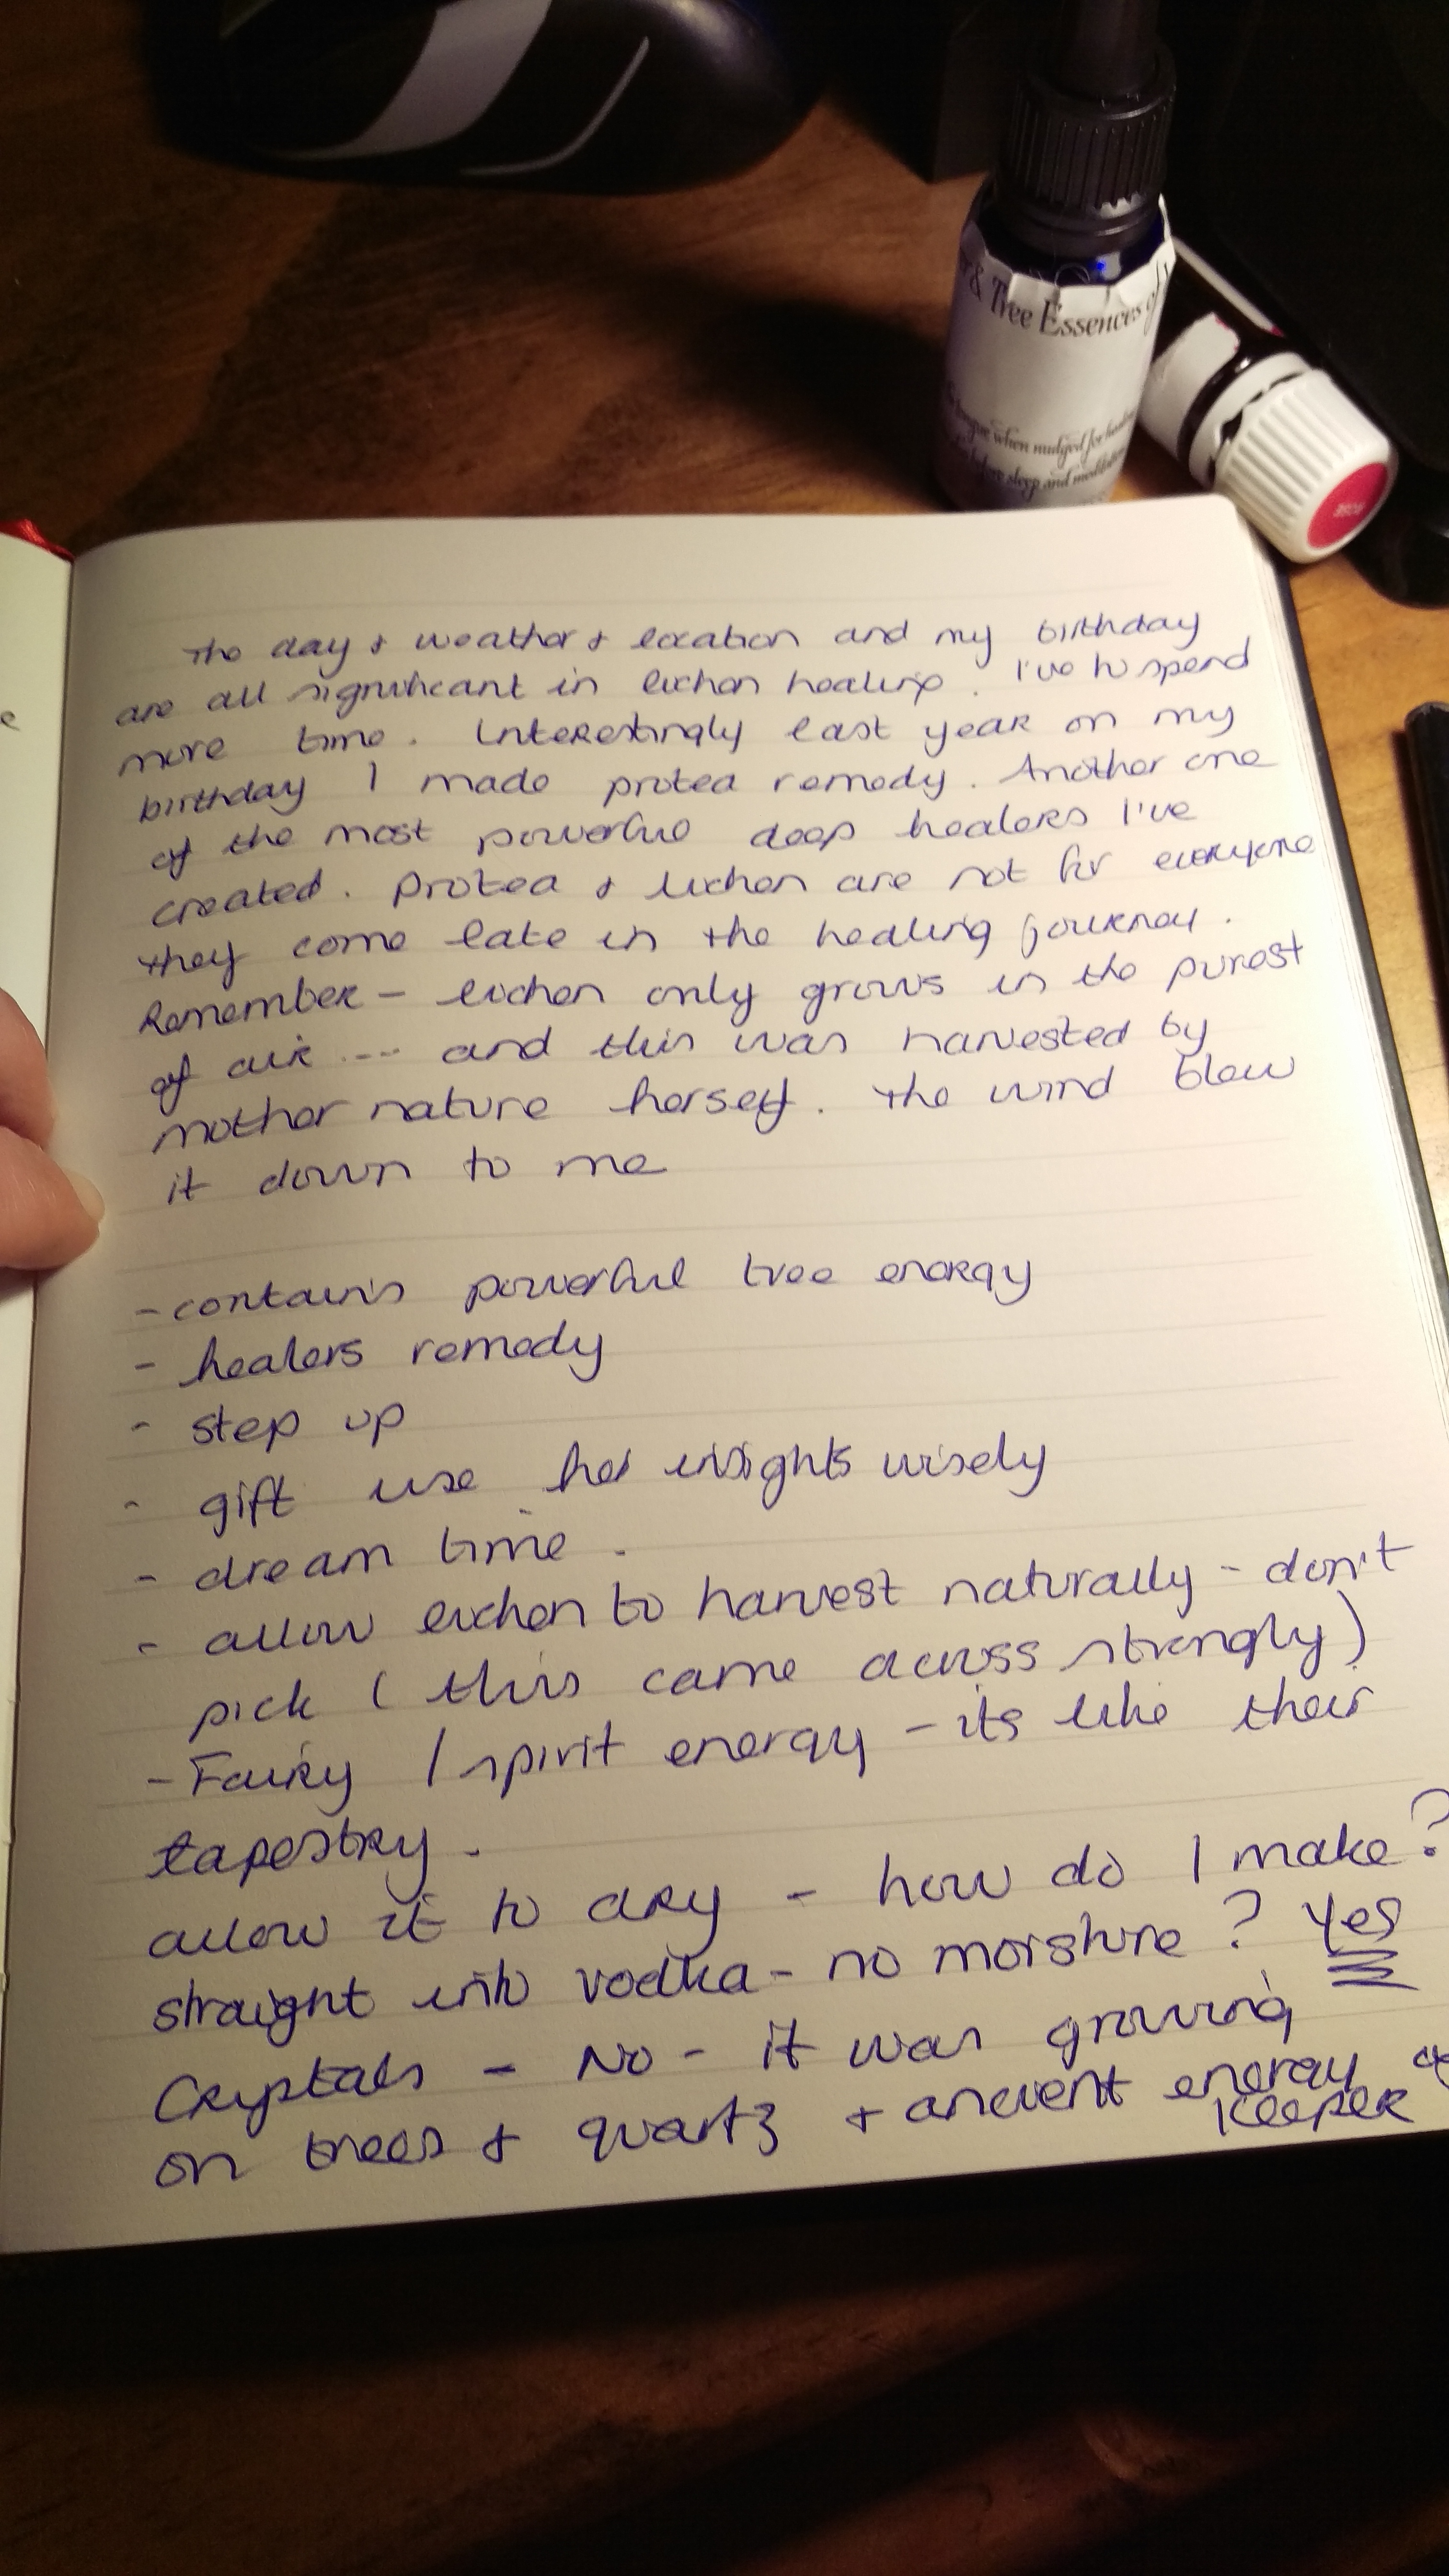 & Tree Essences of
when nudged for
before sleep and
ROSE
The day & weather & location and my birthday
are all significant in lichen healing. I've to spend
more time. Interestingly last year on my
birthday I made protea remedy. Another one
of the most powerful deep healers I've
created. Protea & lichen are not for everyone
they come late in the healing journey.
Remember - lichen only grows in the purest
of air --- and this was harvested by
mother nature herself. The wind blew
it down to me
- contains powerful tree energy
- healers remedy
- step up
- gift use her insights wisely
- dream time.
- allow lichen to harvest naturally - don't
pick (this came across strongly)
- Fairy / spirit energy - its like their
tapestry.
allow it to dry - how do I make?
straight into vodka - no moisture? Yes
Crystals - No - it was growing
on trees & quartz & ancient energy
keeper